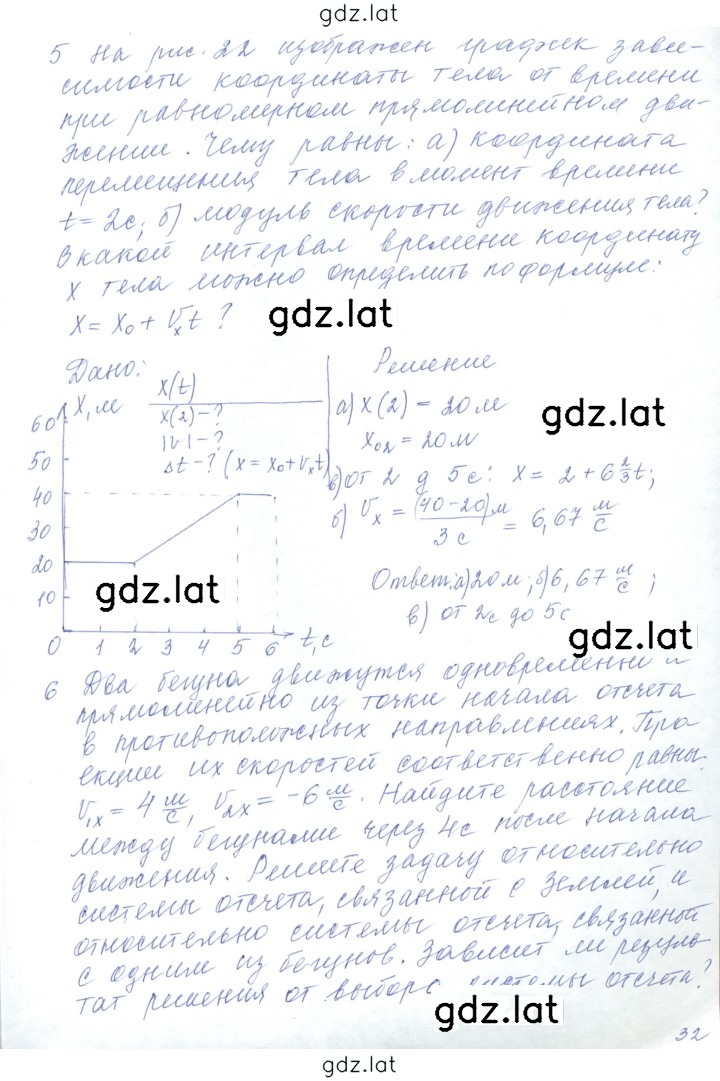 gdz.lat
5 На рис. 22 изображен график зави-
симости координаты тела от времени
при равномерном прямолинейном дви-
жении. Чему равны: а) координата
перемещения тела в момент времени
t = 2с; б) модуль скорости движения тела?
В какой интервал времени координату
X тела можно определить по формуле:
X = X₀ + Vₓt ?
gdz.lat
Дано:
X(t)
X(2) - ?
|V| - ?
Δt - ? (x = x₀ + vₓt)
X, м
60
50
40
30
20
10
0 1 2 3 4 5 6 t, с
gdz.lat
Решение
а) X(2) = 20 м
X₀₂ = 20 м
gdz.lat
в) от 2 д 5с: X = 2 + 6 2/3 t;
б) Vₓ = (40-20)м / 3 с = 6,67 м/с
Ответ: а) 20 м; б) 6,67 м/с;
в) от 2с до 5с
gdz.lat
6 Два бегуна движутся одновременно и
прямолинейно из точки начала отсчета
в противоположных направлениях. Про-
екции их скоростей соответственно равны
V₁ₓ = 4 м/с, V₂ₓ = -6 м/с. Найдите расстояние
между бегунами через 4с после начала
движения. Решите задачу относительно
системы отсчета, связанной с Землей, и
относительно системы отсчета, связанной
с одним из бегунов. Зависит ли резуль-
тат решения от выбора системы отсчета?
gdz.lat
32
gdz.lat